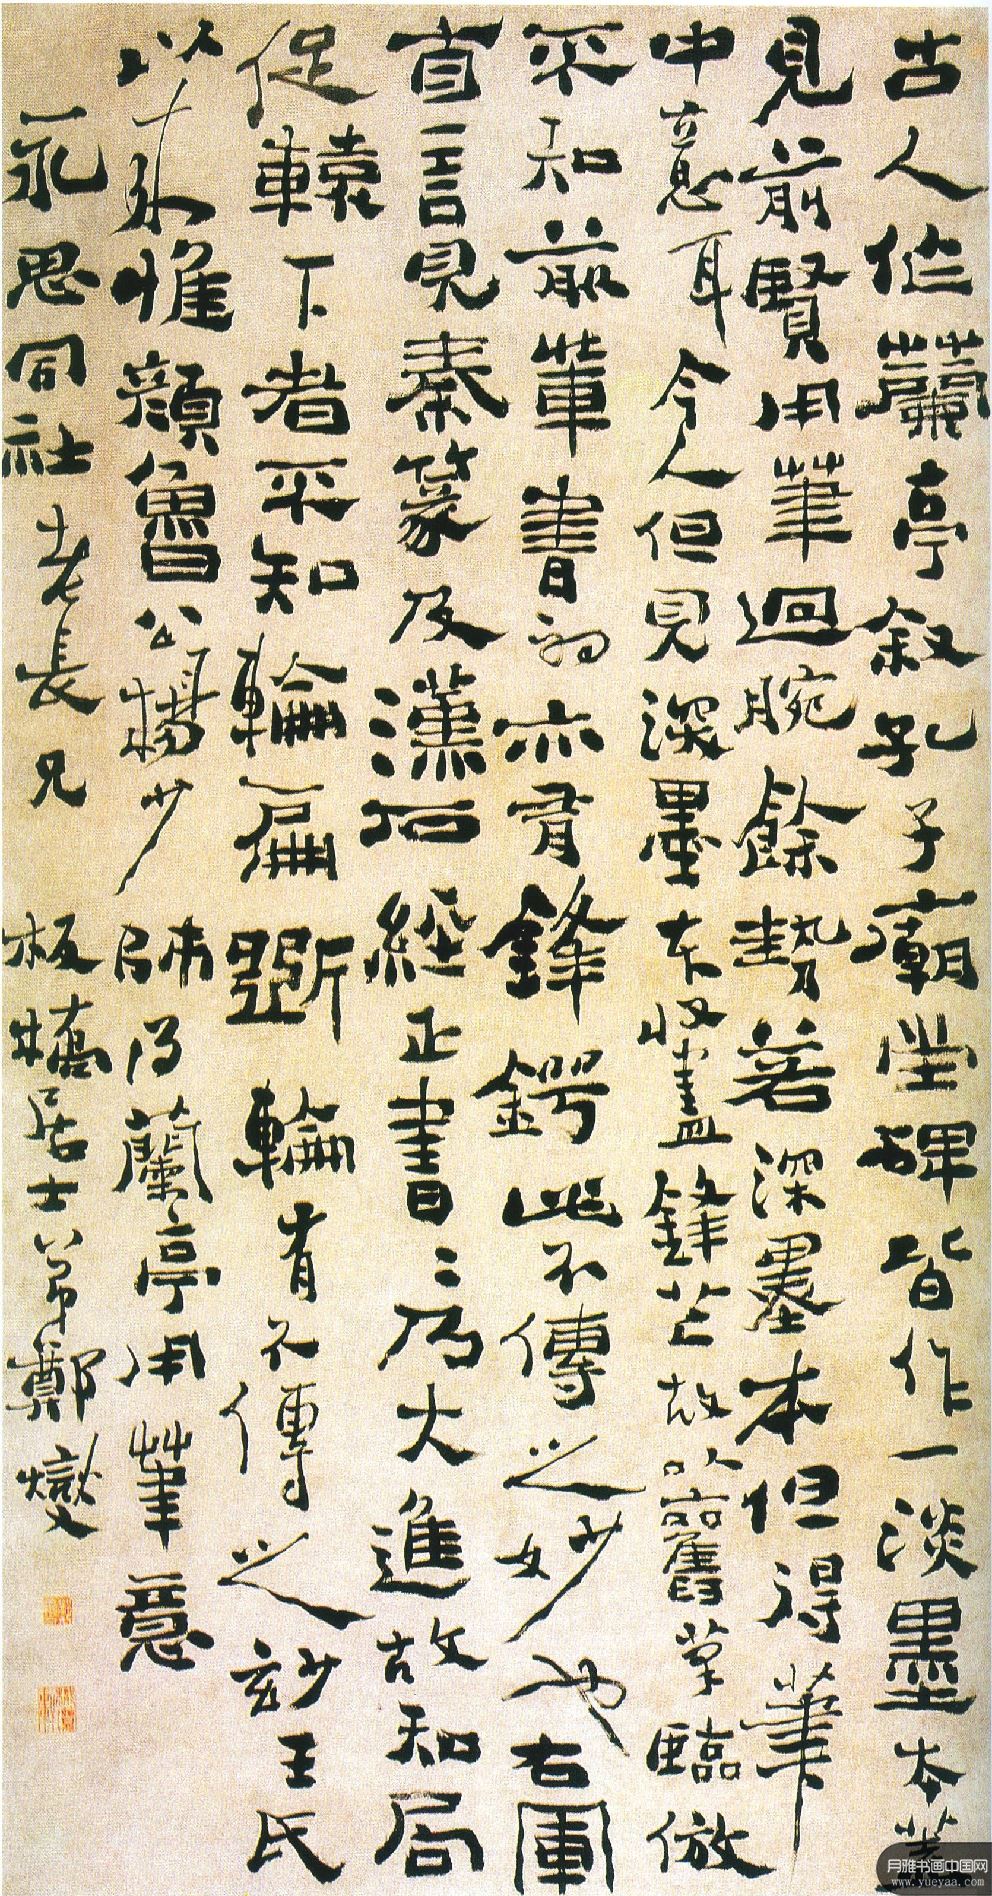 古人作蘭亭叙孔子廟堂碑皆作一淡墨本蓋
見前賢用筆迴腕餘勢若深墨本但得筆
中意耳今人但見深墨本收盡鋒芒故以舊筆臨倣
不知前輩書初亦有鋒鍔此不傳之妙也右軍
自言見秦篆及漢石經正書〻乃大進故知局
促轅下者不知輪扁斲輪有不傳之妙王氏
以來惟顔魯公楊少師得蘭亭用筆意
永思同社老長兄 板橋居士弟鄭燮
月雅书画中国网
www.yueyaa.com